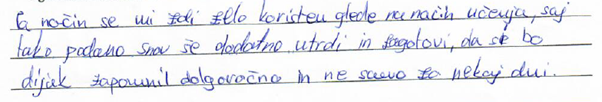 Ta način se mi zdi zelo koristen glede na način učenja, saj
tako podano snov še dodatno utrdi in zagotovi, da si bo
dijak zapomnil dolgoročno in ne samo za nekaj dni.